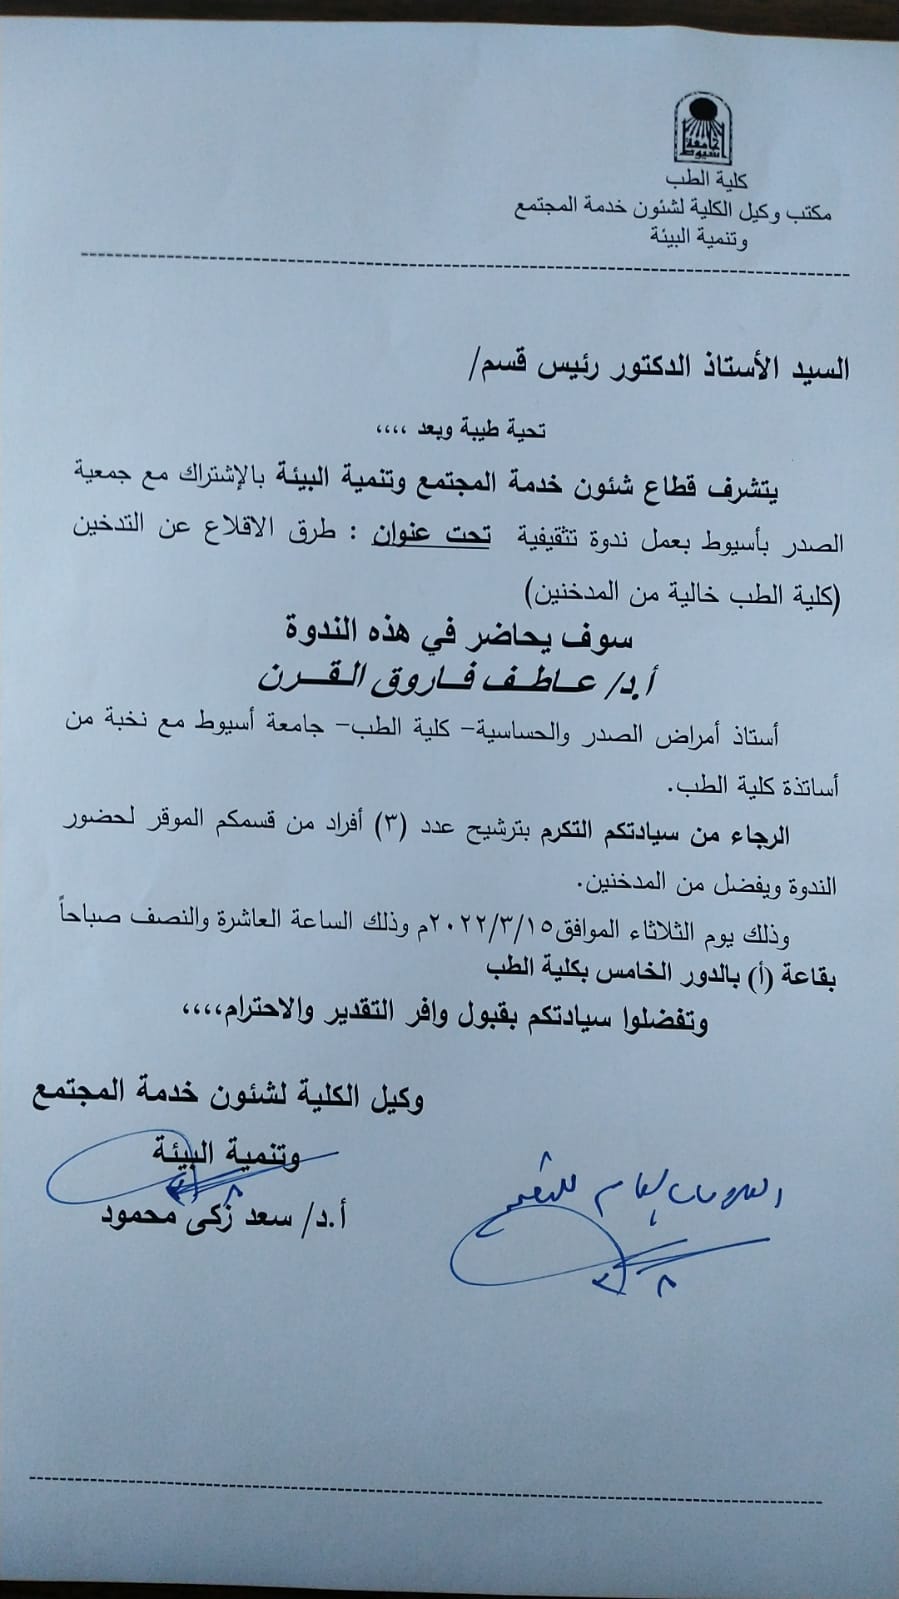 جامعة أسيوط
كلية الطب
مكتب وكيل الكلية لشئون خدمة المجتمع
وتنمية البيئة
السيد الأستاذ الدكتور رئيس قسم/
تحية طيبة وبعد ،،،،
يتشرف قطاع شئون خدمة المجتمع وتنمية البيئة بالإشتراك مع جمعية
الصدر بأسيوط بعمل ندوة تثقيفية تحت عنوان : طرق الاقلاع عن التدخين
(كلية الطب خالية من المدخنين)
سوف يحاضر في هذه الندوة
أ.د/ عـاطـف فـاروق القـرن
أستاذ أمراض الصدر والحساسية- كلية الطب- جامعة أسيوط مع نخبة من
أساتذة كلية الطب.
الرجاء من سيادتكم التكرم بترشيح عدد (٣) أفراد من قسمكم الموقر لحضور
الندوة ويفضل من المدخنين.
وذلك يوم الثلاثاء الموافق٢٠٢٢/٣/١٥م وذلك الساعة العاشرة والنصف صباحاً
بقاعة (أ) بالدور الخامس بكلية الطب
وتفضلوا سيادتكم بقبول وافر التقدير والاحترام،،،،
وكيل الكلية لشئون خدمة المجتمع
وتنمية البيئة
أ.د/ سعد زكى محمود